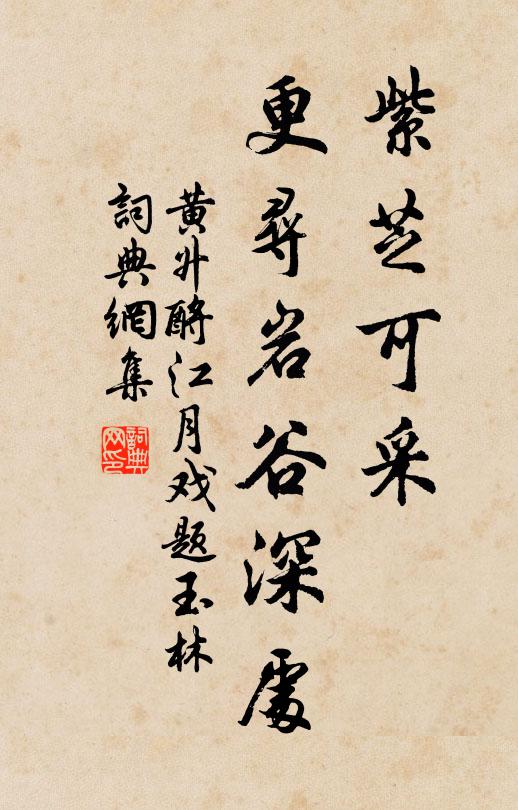 紫芝可采
更尋岩谷深處
黄升酹江月戏题玉林
詞典網集
詞典
网印